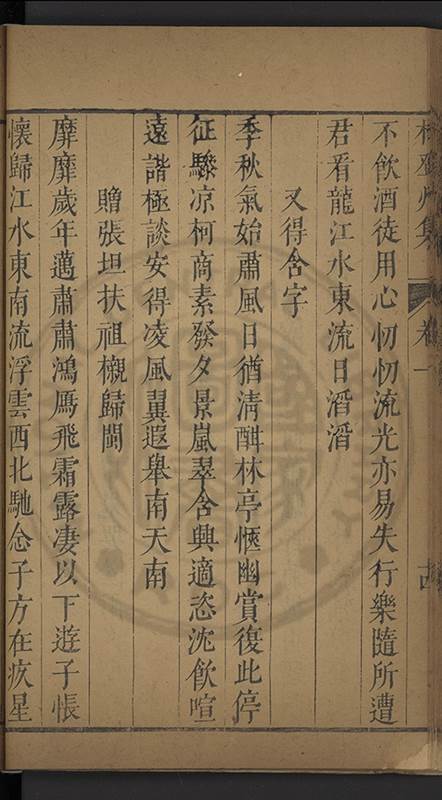 不飲酒徒用心忉忉流光亦易失行樂隨所遭
君看龍江水東流日滔滔
又得含字
季秋氣始肅風日猶淸酣林亭愜幽賞復此停
征驂凉柯商素發夕景嵐翠含興適恣沈飲喧
遠諧極談安得凌風翼遐舉南天南
贈張坦扶祖櫬歸閩
靡靡歲年邁肅肅鴻鴈飛霜露凄以下遊子悵
懷歸江水東南流浮雲西北馳念子方在疚星